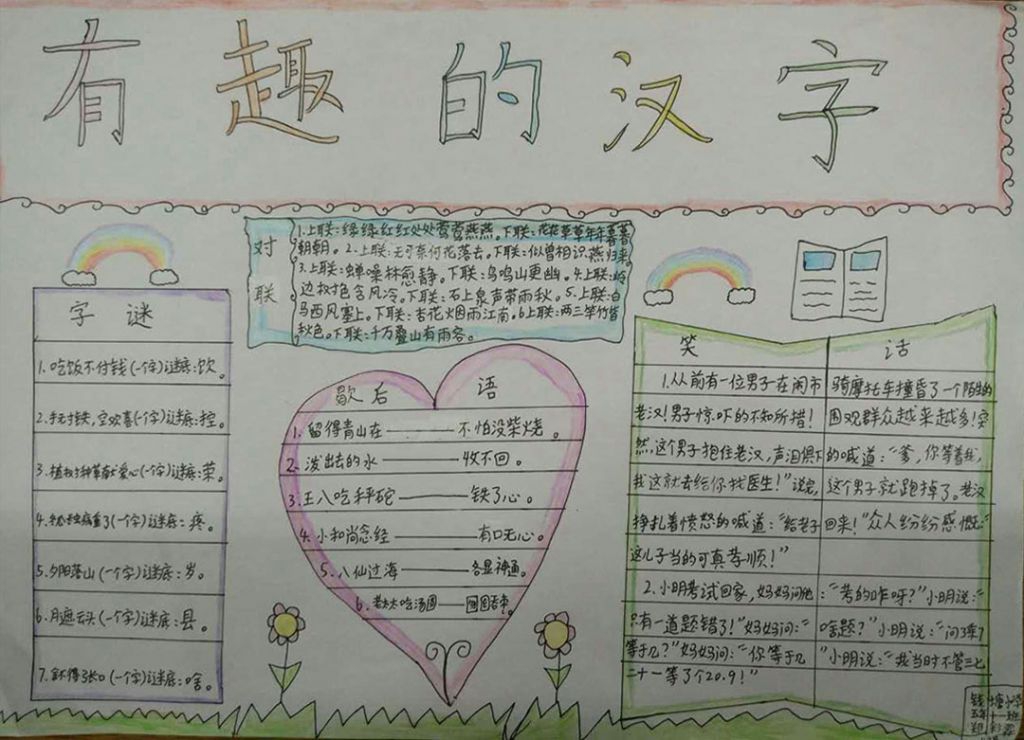 有趣的汉字
对联
1.上联:绿绿红红处处莺莺燕燕。下联:花花草草年年暮暮
朝朝。2.上联:无可奈何花落去。下联:似曾相识燕归来。
3.上联:蝉噪林愈静。下联:鸟鸣山更幽。4.上联:岭
边树色含风冷。下联:石上泉声带雨秋。5.上联:白
马西风塞上。下联:杏花烟雨江南。6上联:两三竿竹皆
秋色。下联:千万叠山有雨客。
字谜
1.吃饭不付钱(一字)谜底:饮。
2.手无寸铁,空欢喜(一字)谜底:控。
3.植树种草献爱心(一字)谜底:荣。
病重了(一字)谜底:疼。
5.夕阳落山(一字)谜底:岁。
6.月遮云头(一字)谜底:县。
7.舍不得张口(一字)谜底:啥。
歇后语
1.留得青山在————不怕没柴烧。
2.泼出去的水————收不回。
3.王八吃秤砣————铁了心。
4.小和尚念经————有口无心。
5.八仙过海————各显神通。
6.老太太吃汤圆——囫囵吞枣。
笑话
1.从前有一位男子在闹市骑摩托车撞昏了一个陌生的
老汉!男子惊吓的不知所措!围观群众越来越多!突
然,这个男子抱住老汉,声泪俱下的喊道:“爹,你等着我,
我这就去给你找医生!”说完,这个男子就跑掉了。老汉
挣扎着愤怒的喊道:“给老子回来!”众人纷纷感慨:“
这儿子当的可真孝顺!”
2.小明考试回家,妈妈问他:“考的咋呀?”小明说:“
只有一道题错了!”妈妈问:“啥题?”小明说:“问3乘7
等于几?”妈妈问:“你等于几”小明说:“我当时不管三七
二十一等了个20.9!”
钱塘小学
五年十一班